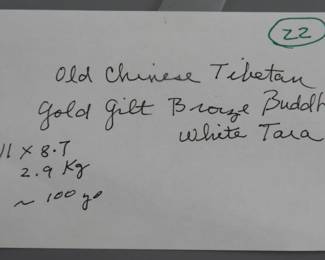 22
Old Chinese Tibetan
Gold Gilt Bronze Buddh
White Tara
11 x 8.7
2.9 Kg
~ 100 yo